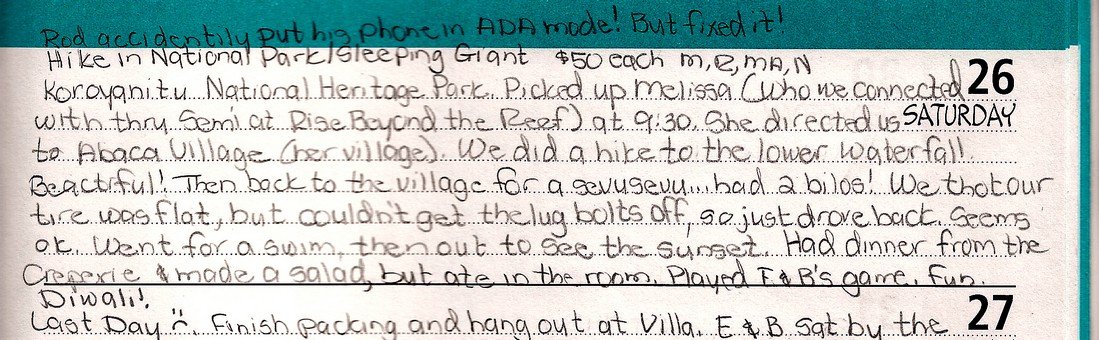 Rod accidentily put his phone in ADA mode! But fixed it!
Hike in National Park/Sleeping Giant $50 each M, R, MA, N
Koroyanitu National Heritage Park. Picked up Melissa (who we connected 26
with thru Semi at Rise Beyond the Reef) at 9:30. She directed us SATURDAY
to Abaca Village (her village). We did a hike to the lower waterfall.
Beactiful! Then back to the village for a sevusevu...had 2 bilos! We thot our
tire was flat, but couldn't get the lug bolts off, so just drove back. Seems
ok. Went for a swim, then out to see the sunset. Had dinner from the
Creperie & made a salad, but ate in the room. Played E & B's game. Fun.
Diwali!
Last Day :(. Finish packing and hang out at Villa. E & B sat by the 27